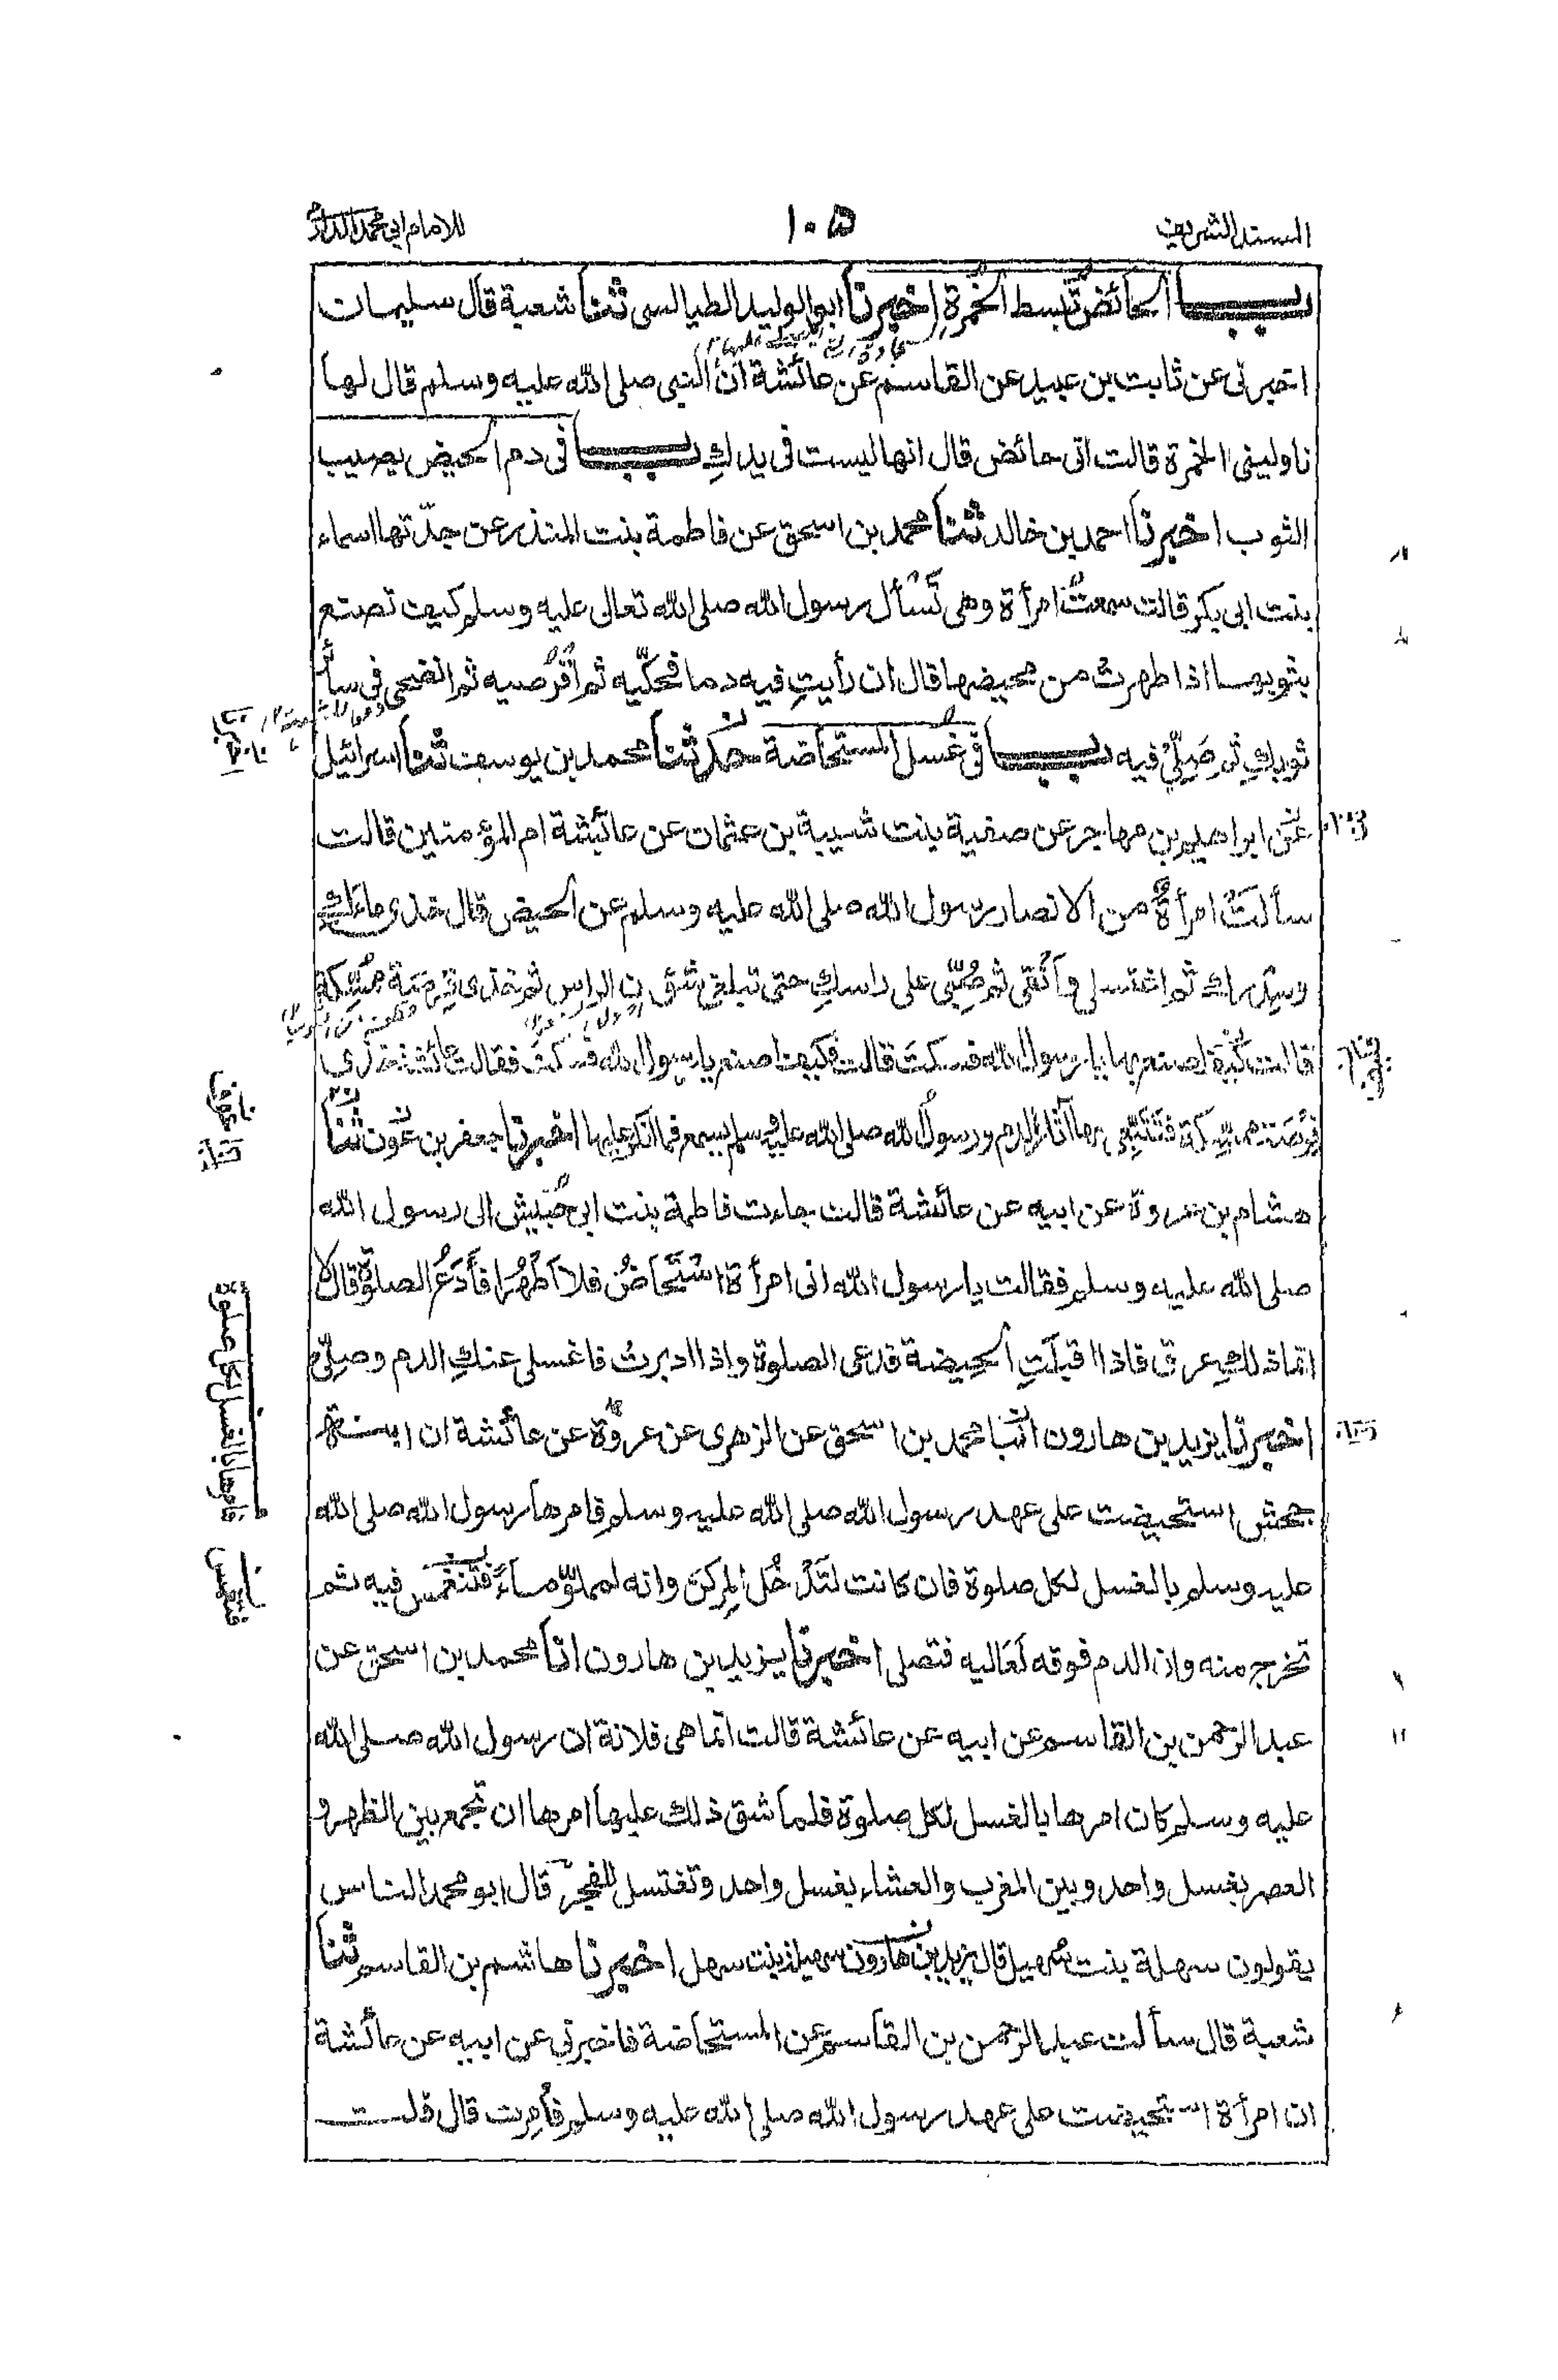 المسند الشريف
١٠٥
للامام ابي محمد الدارمي
باب الحائض تبسط الخمرة اخبرنا ابو الوليد الطيالسى ثنا شعبة قال سليمان
اخبرنى عن ثابت بن عبيد عن القاسم عن عائشة ان النبى صلى الله عليه وسلم قال لها
ناولينى الخمرة قالت انى حائض قال انها ليست فى يدكِ باب فى دم الحيض يصيب
الثوب اخبرنا احمد بن خالد ثنا محمد بن اسحق عن فاطمة بنت المنذر عن جدّتها اسماء
بنت ابى بكر قالت سمعتُ امرأة وهى تَسْأل رسول الله صلى الله تعالى عليه وسلم كيف تصنع
بثوبها اذا طهرت من محيضها قال ان رأيتِ فيه دما فحكّيه ثم اقرُصيه ثم انضحى فى سائر
ثوبكِ ثم صَلِّىْ فيه باب فى غسل المستحاضة حدثنا محمد بن يوسف ثنا اسرائيل
عن ابراهيم بن مهاجر عن صفية بنت شيبة بن عثمان عن عائشة ام المؤمنين قالت
سألتْ امرأةٌ من الانصار رسول الله صلى الله عليه وسلم عن الحيض قال خذى ماءَكِ
وسِدْرك ثم اغتسلى وأَنْقى ثم صُبّى على راسكِ حتى تبلغى شئون الراس ثم خذى فِرْصَة مُمَسَّكة
قالت كيف اصنع بها يا رسول الله فسكتَ قالت فكيف اصنع يا رسول الله فسكتَ فقالت عائشة خذى
فِرْصَة ممسّكة فتَتَبَّعى بها آثار الدم ورسول الله صلى الله عليه وسلم يسمع فما انكر عليها اخبرنا جعفر بن عَوْن ثنا
هشام بن عروة عن ابيه عن عائشة قالت جاءت فاطمة بنت ابى حُبَيش الى رسول الله
صلى الله عليه وسلم فقالت يا رسول الله انى امرأة اُسْتَحَاضُ فلا اَطْهُر افَأَدَعُ الصلوة قال لا
انّما ذلكِ عرق فاذا اقبلَتِ الحيضة فدعى الصلوة واذا ادبرتْ فاغسلى عنكِ الدم وصلِّى
اخبرنا يزيد بن هارون انبا محمد بن اسحق عن الزهرى عن عروة عن عائشة ان ابنة
جحش استحيضت على عهد رسول الله صلى الله عليه وسلم فامرها رسول الله صلى الله
عليه وسلم بالغسل لكل صلوة فان كانت لتَدْخُل المِركن وانه لمملوّ ماءً فتنغمس فيه ثم
تخرج منه وان الدم فوقه لَعَاليه فتصلى اخبرنا يزيد بن هارون انا محمد بن اسحق عن
عبد الرحمن بن القاسم عن ابيه عن عائشة قالت انّما هى فلانة ان رسول الله صلى الله
عليه وسلم كان امرها بالغسل لكل صلوة فلما شق ذلك عليها امرها ان تجمع بين الظهر و
العصر بغسل واحد وبين المغرب والعشاء بغسل واحد وتغتسل للفجر قال ابو محمد الناس
يقولون سهلة بنت سُهيل قال يزيد بن هارون سهيلة بنت سهل اخبرنا هاشم بن القاسم ثنا
شعبة قال سألت عبد الرحمن بن القاسم عن المستحاضة فاخبرنى عن ابيه عن عائشة
ان امرأة استحيضت على عهد رسول الله صلى الله عليه وسلم فأُمِرت قال قلت
فامرها بالغسل لكل صلوة